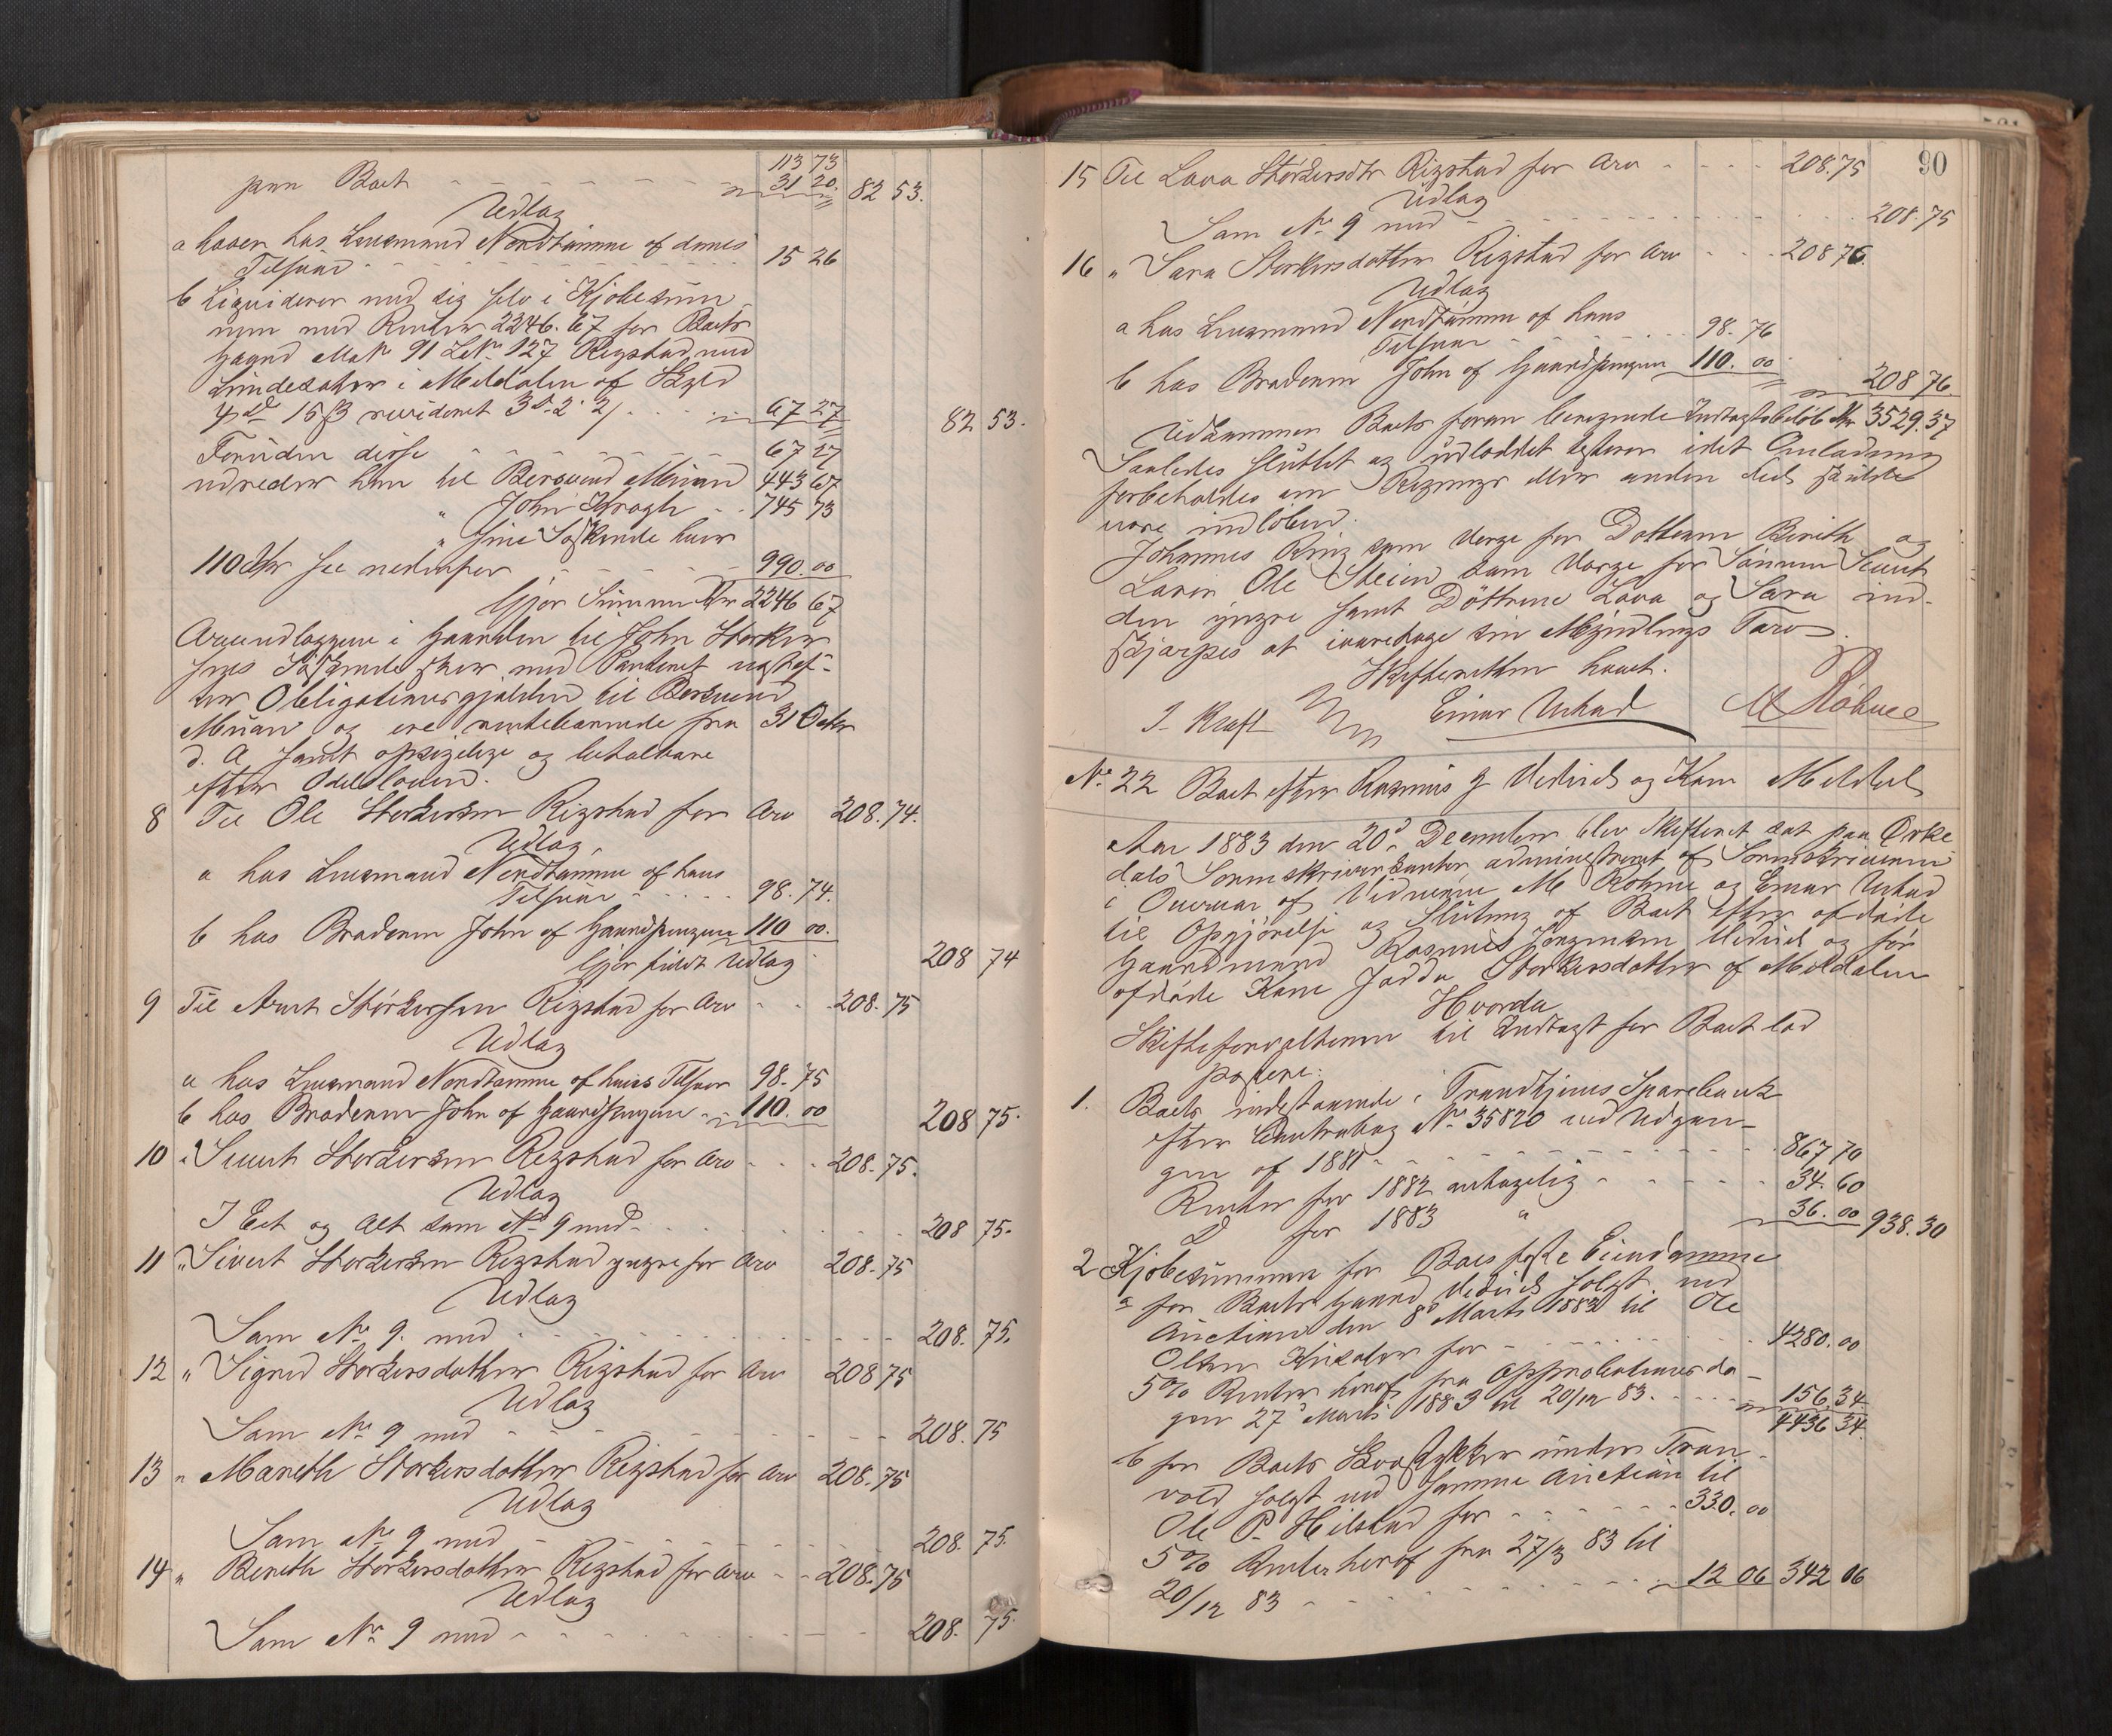 113 73
paa Boet - - - - - - 31 20. 82 53.
Udlæg
a haver hos Lensmand Nordtømme af dennes
Tilsvar - - - - - - 15 26
b Liqviderer med sig selv i Kjøbesum
men med Renter 2246.67 for Boets
Gaard Mat N 91 L.Nr 127 Rigstad med
Lundesaker i Meldalen af Skyld
15 β revideret 3d. 2. 21 - - - 67 27 82 53.
Foruden disse - - - - - 67 27
udreder han til Bersvend Muan 443 67
" John Kragh - - 745 73
" sine Søskende hver
110 Kr see nedenfor - - - - 990.00
Gjør Summa Kr 2246 67
Arveudlæggene i Gaarden til John Størker
sens Søskende sker med Panteret næstef-
ter Obligationsgjælden til Bersvend
Muan og ere rentebærende fra 31 Octbr
d. A samt opsigelige og betalbare
efter Odelsloven.
8 Til Ole Størkersen Rigstad for Arv 208.74.
Udlæg
a hos Lensmand Nordtømme af hans
Tilsvar - - - - - 98.74.
b hos Broderen John af Gaardspengene 110 00.
Gjør fuldt Udlæg 208 74
9 Til Arnt Størkersen Rigstad for Arv - - - 208.75
Udlæg
a hos Lensmand Nordtømme af hans Tilsvar 98.75
b hos Broderen John af Gaardspengene - 110.00 208 75.
10 " Sivert Størkersen Rigstad for Arv - - - 208.75.
Udlæg
I Eet og Alt som No 9 med - - - - 208 75.
11 " Sivert Størkersen Rigstad yngre for Arv 208.75
Udlæg
Som No 9. med - - - - - - 208.75.
12 " Sigrid Størkersdatter Rigstad for Arv 208 75
Udlæg
Som No 9 med - - - - - - 208.75
13 " Mareth Størkersdatter Rigstad for Arv 208.75
Udlæg
Som No 9 med - - - - - - 208.75.
14 " Bereth Størkersdatter Rigstad for Arv - - 208.75
Udlæg
Som No 9 med - - - - - - 208.75.
90
15 Til Lava Størkersdtr Rigstad for Arv - - - - 208.75
Udlæg
Som No 9 med - - - - - - 208.75
16 " Sara Størkersdatter Rigstad for Arv - - - 208 76.
Udlæg
a hos Lensmand Nordtømme af hans
Tilsvar - - - - - 98.76
b hos Broderen John af Gaardspengene 110.00 208 76
Udkommen Boets foran beregnede Indtægtsbeløb Kr 3529.37
Saaledes sluttet og udloddet testerer idet Omlodning
forbeholdes om Regnings eller anden Feil skulde
være indløben.
Johannes Ring som Verge for Datteren Bireth og
Larer Ole Steien som Verge for Sønnen Sivert
den yngre samt Døttrene Lava og Sara ind-
skjærpes at ivaretage sin Myndlings Tarv.
Skifteretten hævet.
J. Kraft Einar Urstad M Röhme
No. 22 Boet efter Rasmus J Meduel og Kone Meldal
Aar 1883 den 20d December blev Skifteret sat paa Orke
dals Sorenskriverkontor administreret af Sorenskriveren
i Overvær af Vidnerne M Rohme og Einar Urstad
til Opgjørelse og Slutning af Boet efter afdøde
Gaardmand Rasmus Jørgensen og før
afdøde Kone Jødda Størkersdatter af Meldalen
Hvorda
Skifteforvalteren til Indtægt for Boet lod
postere:
1. Boets indestaaende i Trondhjems Sparebank
efter Contrabog No 35820 ved Udgan-
gen af 1881 - - - - - - 867 70
Renter for 1882 antagelig - - - - - 34.60
Do for 1883 " - - 36.00 938.30
2 Kjøbesummen for Boets faste Eiendomme
a for Boets Gaard solgt ved
Auction den 8d Marts 1883 til Ole
Olsen for - - - - - - 4280.00
5% Renter heraf fra Approbationsda-
gen 27d Marts 1883 til 20/12 83. - - - - 156.34.
4436 34.
b for Boets Skovstykker under Tran-
vold solgt ved samme Auction til
Ole P. Hilstad for - - - - - - 330.00
5% Renter heraf fra 27/3 83 til
20/12 83 - - - - - - 12 06 342 06